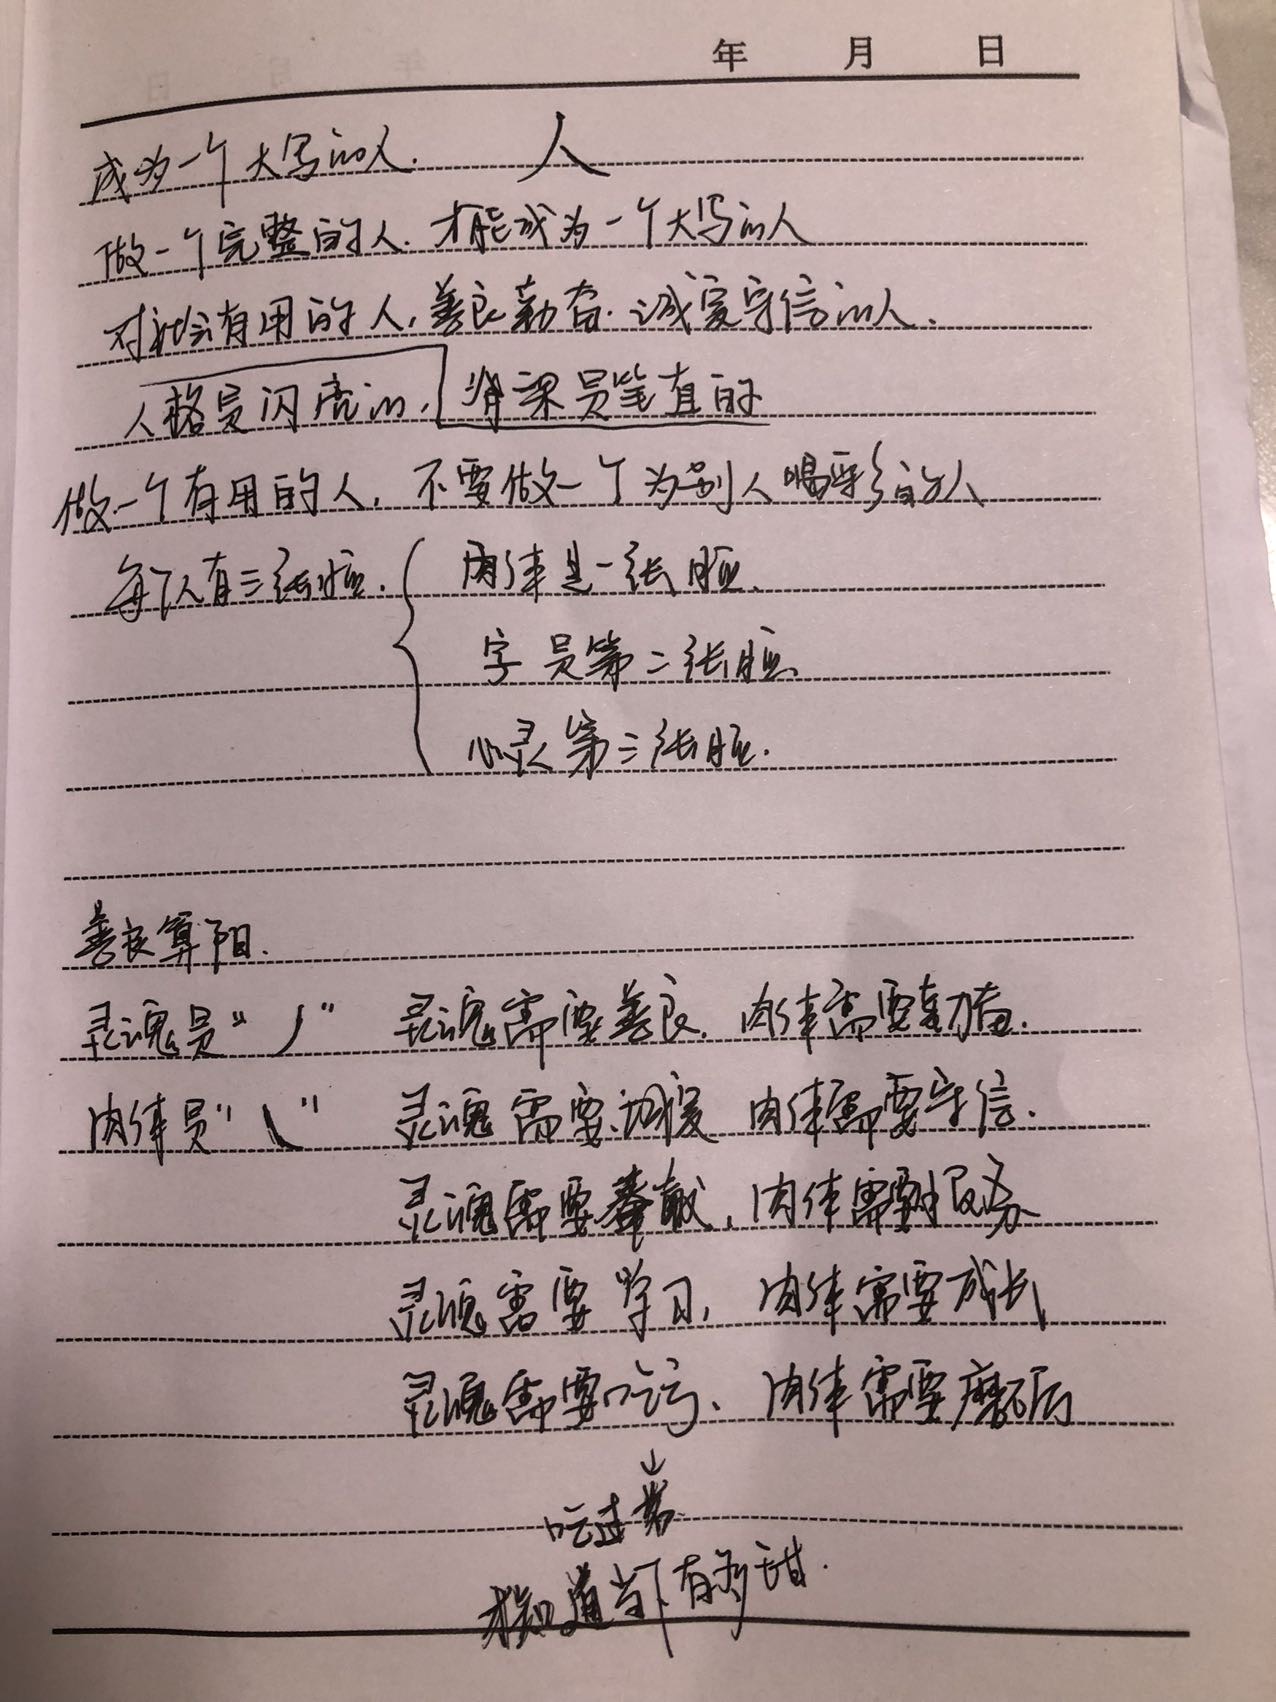 年 月 日
成为一个大写的人. 人
做一个完整的人. 才能成为一个大写的人
对社会有用的人, 善良勤奋. 诚实守信的人.
人格是闪亮的, 脊梁是笔直的
做一个有用的人, 不要做一个为别人喝彩的人
每个人有三张脸. 肉体是一张脸.
字是第二张脸
心灵第三张脸.
善良算阳.
灵魂是“丿” 灵魂需要善良. 肉体需要勤奋.
肉体是“㇏” 灵魂需要诚实 肉体需要守信.
灵魂需要奉献, 肉体需要服务
灵魂需要学习, 肉体需要成长
灵魂需要吃亏、肉体需要磨砺
↓
吃过苦
才知道当下有多甜.